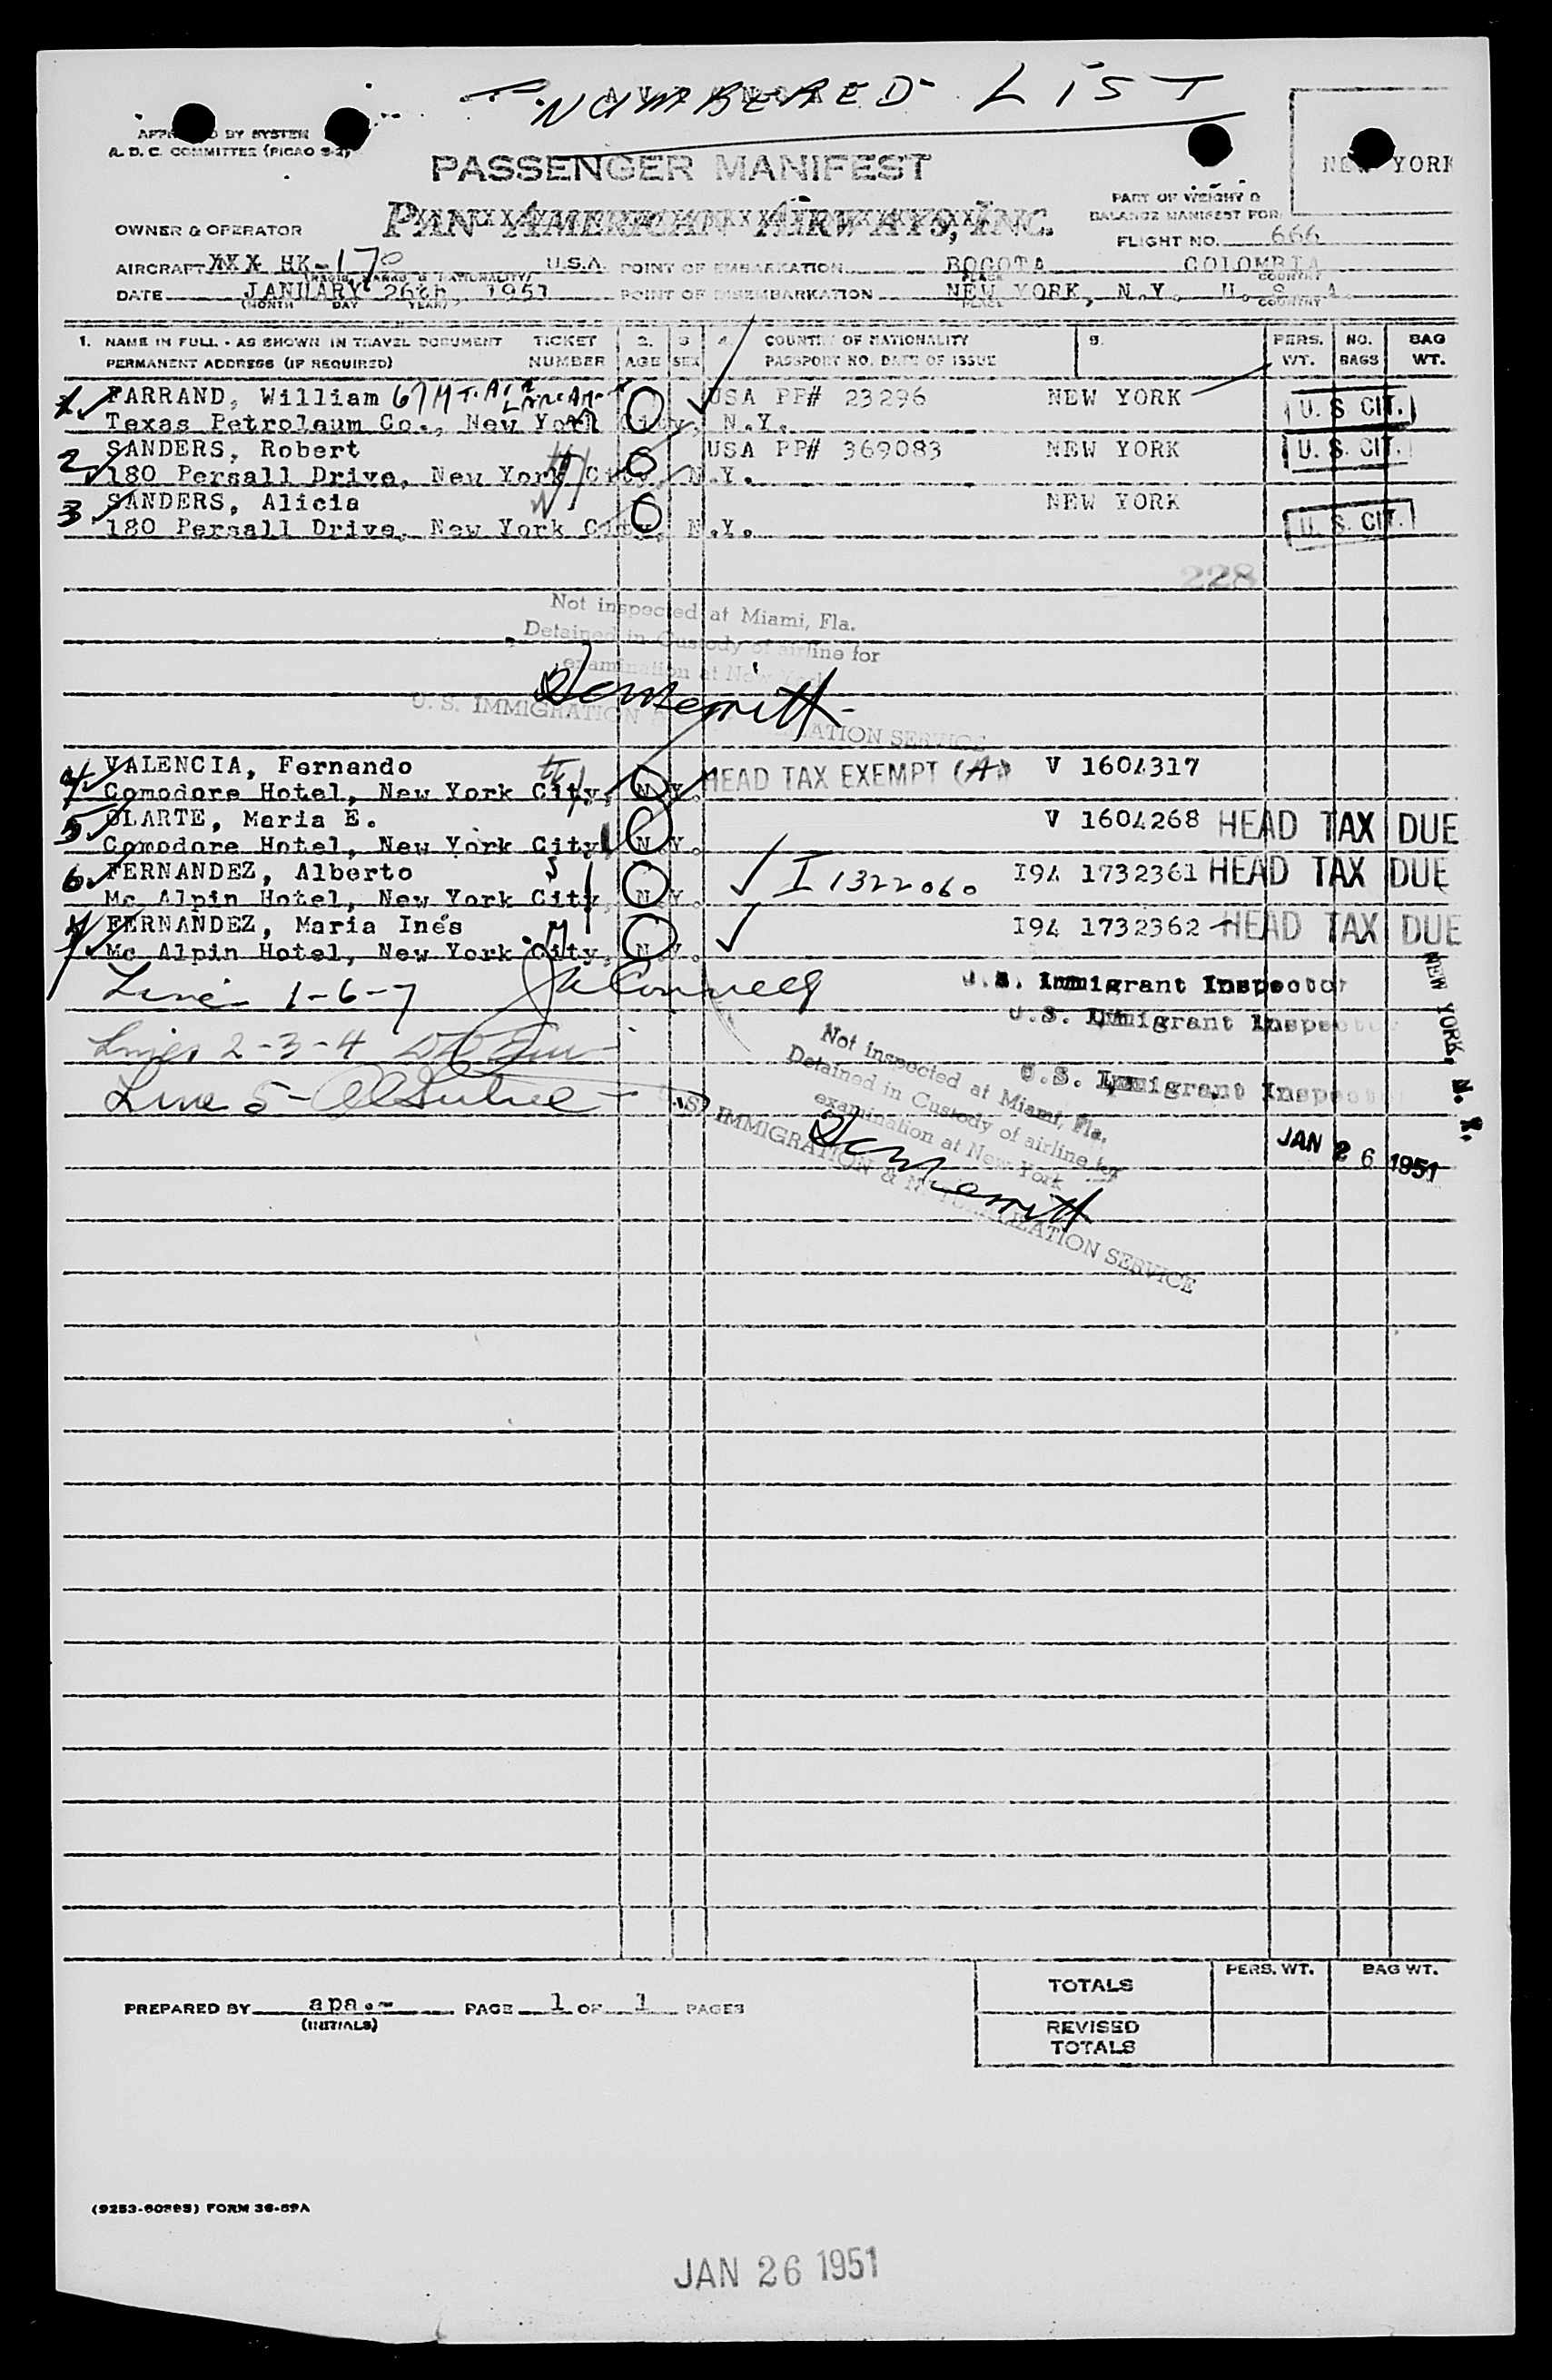 NUMBERED LIST
BY SYSTEM
A. D. C. COMMITTEE (PICAO 9-2)
PASSENGER MANIFEST
YORK
PAN AMERICAN AIRWAYS, INC.
PART OF WEIGHT &
BALANCE MANIFEST FOR
OWNER & OPERATOR
FLIGHT NO. 666
AIRCRAFT XXX HK-170 U.S.A. POINT OF EMBARKATION BOGOTA COLOMBIA
PLACE COUNTRY
DATE JANUARY 26th, 1951 POINT OF DISEMBARKATION NEW YORK, N.Y. U. S. A.
(MONTH DAY YEAR) PLACE COUNTRY
1. NAME IN FULL - AS SHOWN IN TRAVEL DOCUMENT TICKET 2. 3 4. COUNTRY OF NATIONALITY 5. PERS. NO. BAG
PERMANENT ADDRESS (IF REQUIRED) NUMBER AGE SEX PASSPORT NO. DATE OF ISSUE WT. BAGS WT.
1 FARRAND, William 67 USA PP# 23296 NEW YORK U. S CIT.
Texas Petroleum Co., New York City, N.Y.
2 SANDERS, Robert USA PP# 369083 NEW YORK U. S. CIT.
180 Persall Drive, New York City, N.Y.
3 SANDERS, Alicia NEW YORK
180 Persall Drive, New York City, N.Y. U. S. CIT.
228
Not inspected at Miami, Fla.
Detained in Custody of airline for
examination at New York
U. S. IMMIGRATION ATION SERVICE
4 VALENCIA, Fernando V 1604317
Comodore Hotel, New York City, N.Y. HEAD TAX EXEMPT (A)
5 OLARTE, Maria E. V 1604268 HEAD TAX DUE
Comodore Hotel, New York City, N.Y.
6 FERNANDEZ, Alberto I 1322060 I94 1732361 HEAD TAX DUE
Mc Alpin Hotel, New York City, N.Y.
7 FERNANDEZ, Maria Inés I94 1732362 HEAD TAX DUE
Mc Alpin Hotel, New York City, N.Y.
Line 1-6-7 U.S. Immigrant Inspector
U.S. Immigrant Inspector
Lines 2-3-4
U.S. Immigrant Inspector
Line 5-
NEW YORK, N. Y.
JAN 26 1951
Not inspected at Miami, Fla.
Detained in Custody of airline for
examination at New York
U. S. IMMIGRATION & NATURALIZATION SERVICE
TOTALS PERS. WT. BAG WT.
PREPARED BY apa.- PAGE 1 OF 1 PAGES
(INITIALS)
REVISED
TOTALS
JAN 26 1951